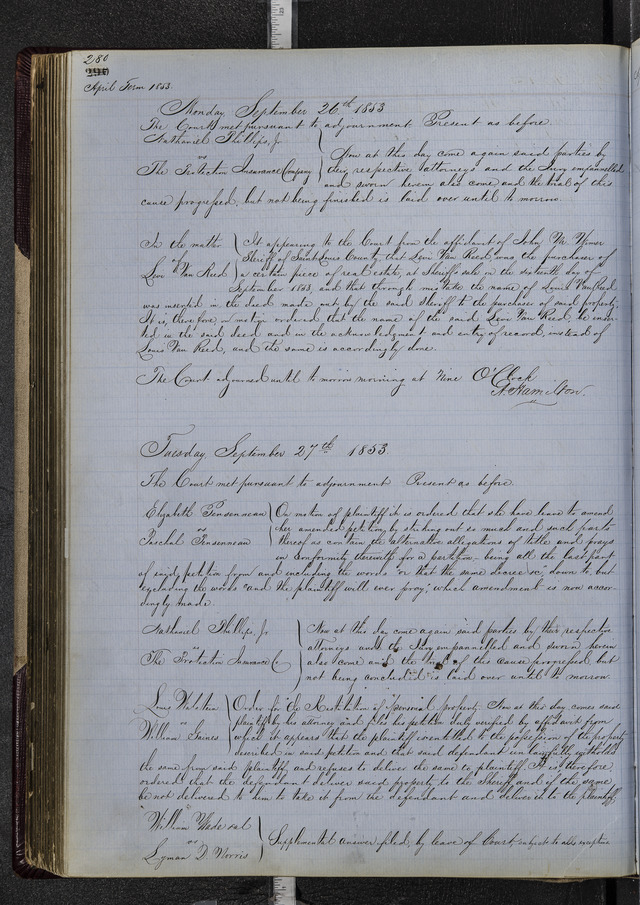 280
April Term 1853.
Monday September 26th 1853
The Court met pursuant to adjournment Present as before.
Nathaniel Phillips, Jr
vs
The Protection Insurance Company
Now at this day come again said parties by
their respective attorneys and the Jury empannelled
and sworn herein also come and the trial of this
cause progressed, but not being finished is laid over until to morrow.
In the matter
of
Levi Van Reed
It appearing to the Court from the affidavit of John M.
Sheriff of Saint Louis County, that Levi Van Reed, was the purchaser of
a certain piece of real estate, at Sheriff's sale on the sixteenth day of
September 1853, and that through mistake the name of Louis Van Reed
was inserted in the deed made out by the said Sheriff to the purchaser of said property.
It is, therefore, on motion ordered that the name of the said Levi Van Reed, be inser-
ted in the said deed and in the acknowledgment and entry of record, instead of
Louis Van Reed, and the same is accordingly done.
The Court adjourned until to morrow morning at Nine O'Clock
A. Hamilton.
Tuesday, September 27th 1853
The Court met pursuant to adjournment Present as before.
Elizabeth Pensenneau
vs
Paschal Pensenneau
On motion of plaintiff it is ordered that she have leave to amend
her amended petition, by striking out so much and such part
thereof as contain the alternative allegations of title and prays
in conformity therewith for a partition, being all the last part
of said petition from and including the words "or that the same decree &c", down to but
excluding the words "and the plaintiff will ever pray", which amendment is now accor-
dingly made.
Nathaniel Phillips, Jr
vs
The Protection Insurance Co
Now at this day come again said parties by their respective
attorneys and the Jury empannelled and sworn herein
also come and the trial of this cause progressed, but
not being concluded is laid over until to morrow.
vs
William Gaines
Order for the Restitution of personal property. Now at this day comes said
plaintiff by his attorney and files his petition duly verified by affidavit from
which it appears that the plaintiff is entitled to the possession of the property
described in said petition and that said defendant wrongfully withholds
the same from said plaintiff and refuses to deliver the same to plaintiff. It is therefore
ordered that the defendant deliver said property to the Sheriff and if the same
be not delivered to him to take it from the defendant and deliver it to the plaintiff.
William Wade et al
vs
Lyman D. Norris
Supplemental answer filed by leave of Court, subject to all exceptions